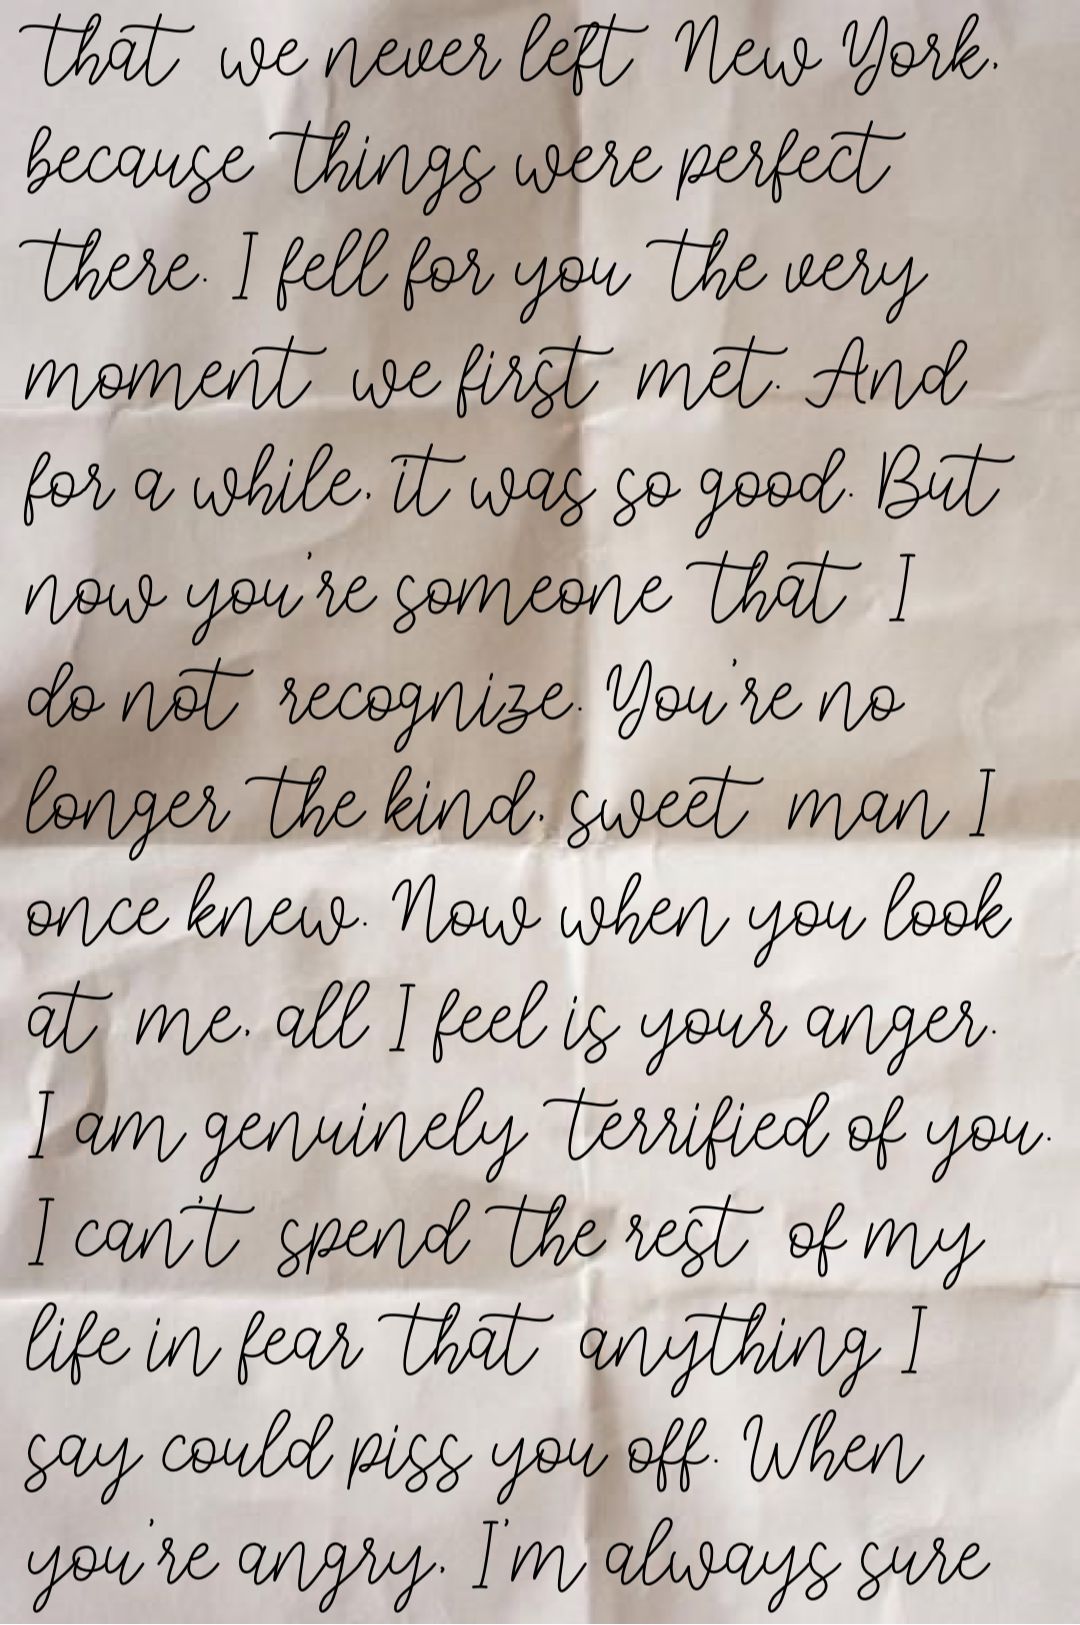 that we never left New York,
because things were perfect
there. I fell for you the very
moment we first met. And
for a while, it was so good. But
now you're someone that I
do not recognize. You're no
longer the kind, sweet man I
once knew. Now when you look
at me, all I feel is your anger.
I am genuinely terrified of you.
I can't spend the rest of my
life in fear that anything I
say could piss you off. When
you're angry, I'm always sure